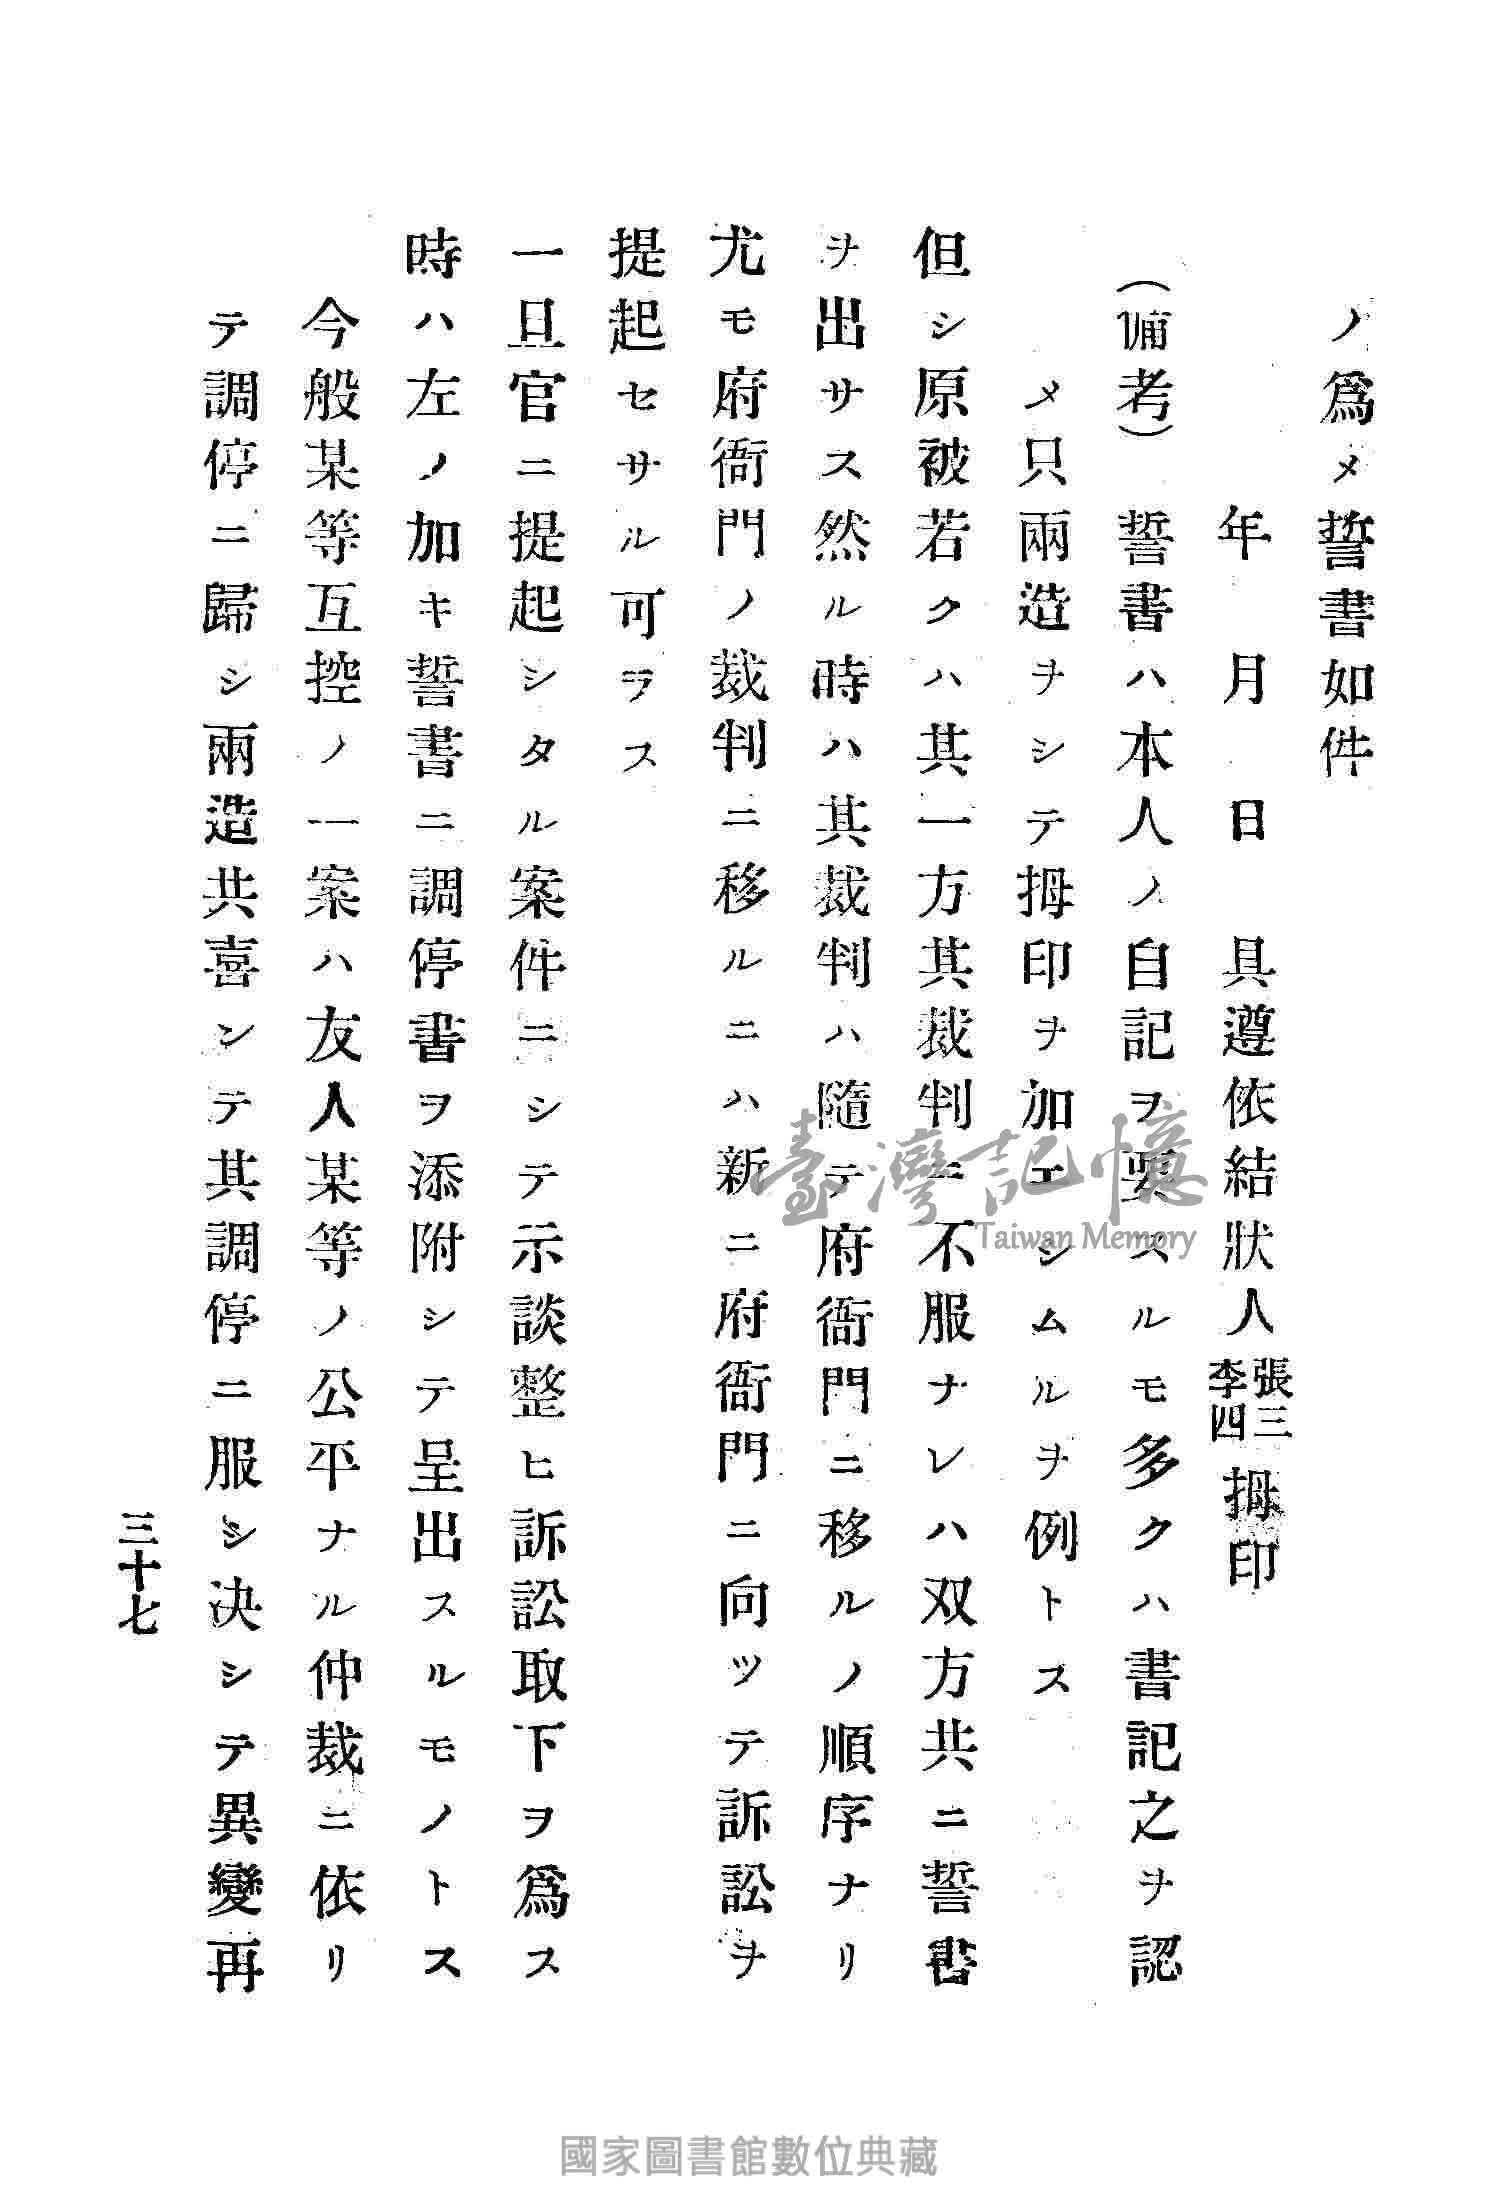 ノ爲メ誓書如件
年 月 日 具遵依結狀人 張三 李四 拇印
(備考) 誓書ハ本人ノ自記ヲ要スルモ多クハ書記之ヲ認
メ只兩造ヲシテ拇印ヲ加エシムルヲ例トス
但シ原被若クハ其一方其裁判ニ不服ナレハ双方共ニ誓書
ヲ出サス然ル時ハ其裁判ハ隨テ府衙門ニ移ルノ順序ナリ
尤モ府衙門ノ裁判ニ移ルニハ新ニ府衙門ニ向ツテ訴訟ヲ
提起セサル可ラス
一旦官ニ提起シタル案件ニシテ示談整ヒ訴訟取下ヲ爲ス
時ハ左ノ加キ誓書ニ調停書ヲ添附シテ呈出スルモノトス
今般某等互控ノ一案ハ友人某等ノ公平ナル仲裁ニ依リ
テ調停ニ歸シ兩造共喜ンテ其調停ニ服シ決シテ異變再
三十七
臺灣記憶
Taiwan Memory
國家圖書館數位典藏